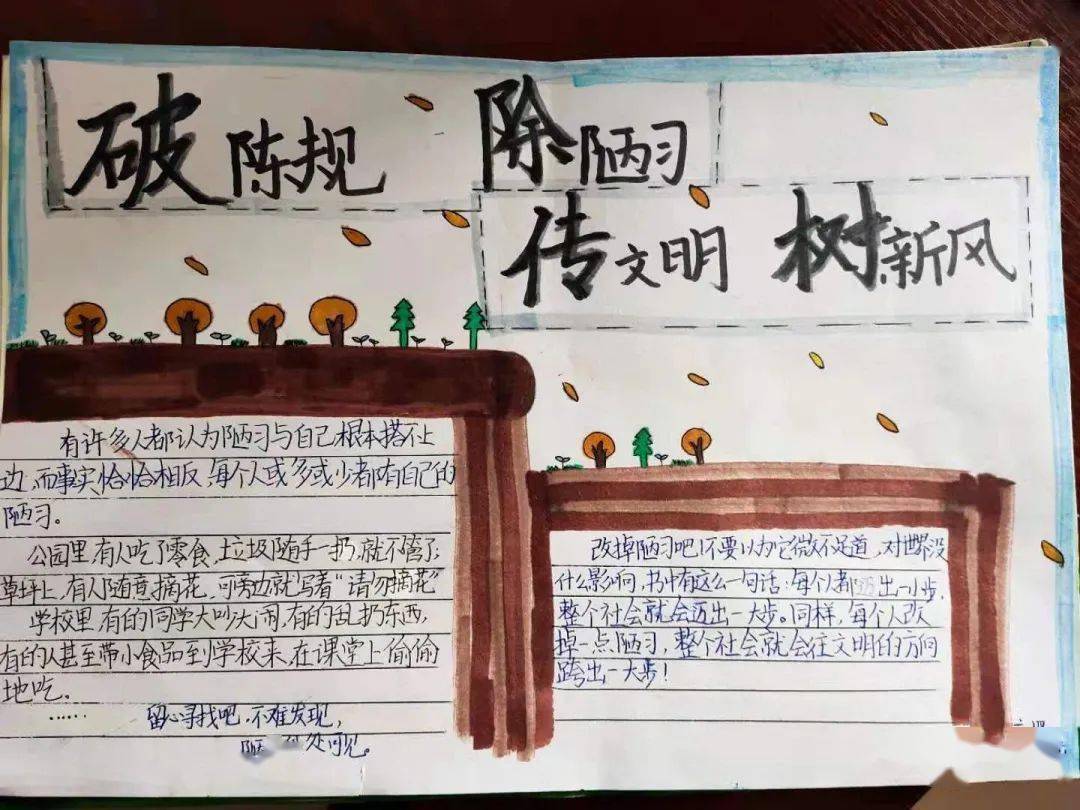 破陈规 除陋习
传文明 树新风
有许多人都认为陋习与自己根本搭不上
边,而事实恰恰相反,每个人或多或少都有自己的
陋习。
公园里,有人吃了零食,垃圾随手一扔,就不管了;
草坪上,有人随意摘花,可旁边就写着“请勿摘花”
学校里,有的同学大吵大闹,有的乱扔东西,
有的人甚至带小食品到学校来,在课堂上偷偷
地吃。
……
留心寻找吧,不难发现,
陋 处可见。
改掉陋习吧!不要以为它微不足道,对世界没
什么影响,书中有这么一句话:每个人都迈出一小步,
整个社会就会迈出一大步。同样,每个人改
掉一点陋习,整个社会就会往文明的方向
跨出一大步!